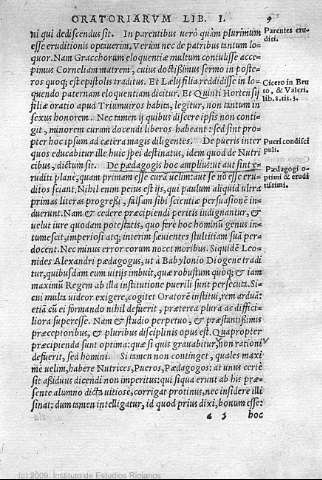 ORATORIARVM LIB. I. 9
ni qui dediscendus sit. In parentibus uerò quàm plurimum
esse eruditionis optauerim, Verùm nec de patribus tantum lo-
quor. Nam Gracchorum eloquentiæ multum contulisse acce-
pimus Corneliam matrem, cuius doctissimus sermo in poste-
ros quoq; est epistolis traditus. Et Lælys filia reddidisse in lo-
quendo paternam eloquentiam dicitur. Et Quinti Hortensij
filiæ oratio apud Triumuiros habita, legitur, non tantum in
sexus honorem. Nec tamen ij quibus discere ipsis non conti-
git, minorem curam docendi liberos habeant: sed sint pro-
pter hoc ipsum ad cætera magis diligentes. De pueris inter
quos educabitur ille huic spei destinatus, idem quod de Nutri
cibus, dictum sit. De pædagogis hoc ampliùs: ut aut sint e-
ruditi planè, quam primam esse curã uelim: aut se nõ esse eru-
ditos sciant. Nihil enim peius est ijs, qui paulum aliquid ultra
primas literas progressi, falsam sibi scientiæ persuasionẽ in-
duerunt. Nam & cedere præcipiendi peritis indignantur, &
uelut iure quodam potestatis, quo fere hoc hominũ genus intu-
mescit, imperiosi atq; interim sæuientes stultitiam suã per-
docent. Nec minus error eorum nocet moribus. Siquidẽ Leo-
nides Alexandri pædagogus, ut à Babylonio Diogene tradi
tur, quibusdam eum uitijs imbuit, quæ robustum quoq; & iam
maximũ Regem ab illa institutione puerili sunt persecuta. Si
cui multa uideor exigere, cogitet Oratorẽ institui, rem arduã:
etiã cũ ei formando nihil defuerit, præterea plura ac diffici-
liora superesse. Nam & studio perpetuo, & præstantissimis
præceptoribus, & pluribus disciplinis opus est. Quapropter
præcipienda sunt optima: quæ si quis grauabitur, non rationi
defuerit, sed homini. Si tamen non continget, quales maxi
mè uelim, habere Nutrices, Pueros, Pædagogos: at unus certè
sit assiduus dicendi non imperitus: qui siqua erunt ab his præ-
sente alumno dicta uitiosè, corrigat protinus, nec insidere illi
sinat: dum tamen intelligatur, id quod prius dixi, bonum esse:
a 5 hoc
Parentes eru-
diti.
Cicero in Bru
to, & Valeri,
lib. 8. tit. 3.
Pueri condisci
puli.
Pædagogi o-
ptimi & erudi
tissimi.
(c) 2009. Instituto de Estudios Riojanos